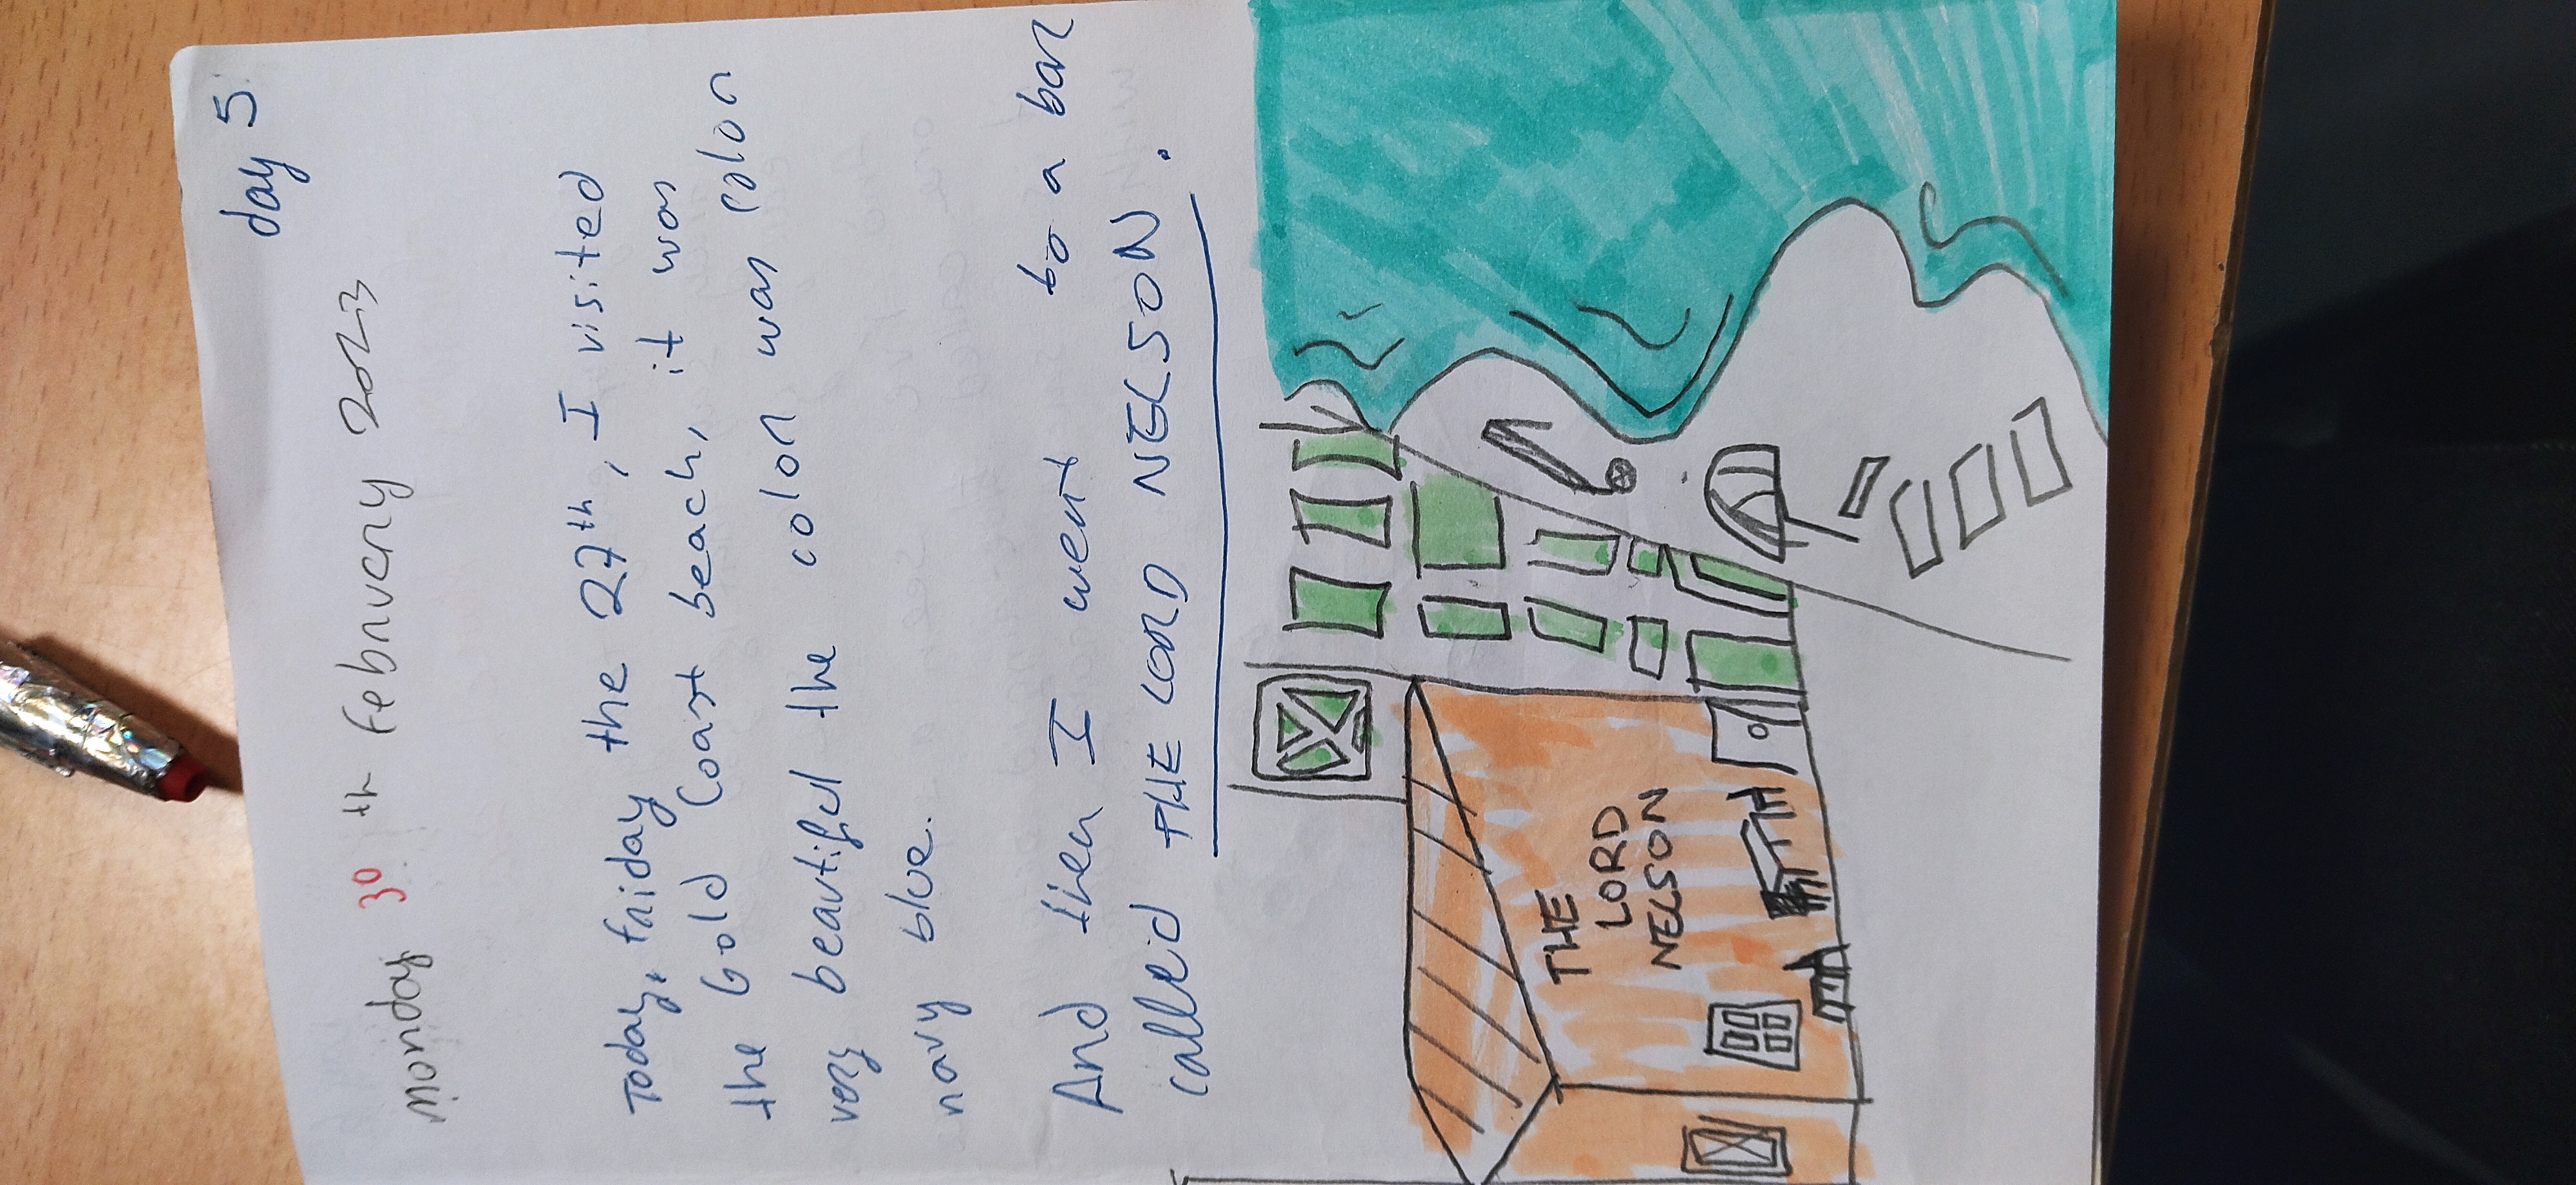 day 5
Monday 30th February 2023
Today, friday the 27th, I visited
the Gold Coast beach, it was
very beautiful the color was color
navy blue.
And then I went to a bar
called THE LORD NELSON.
THE
LORD
NELSON